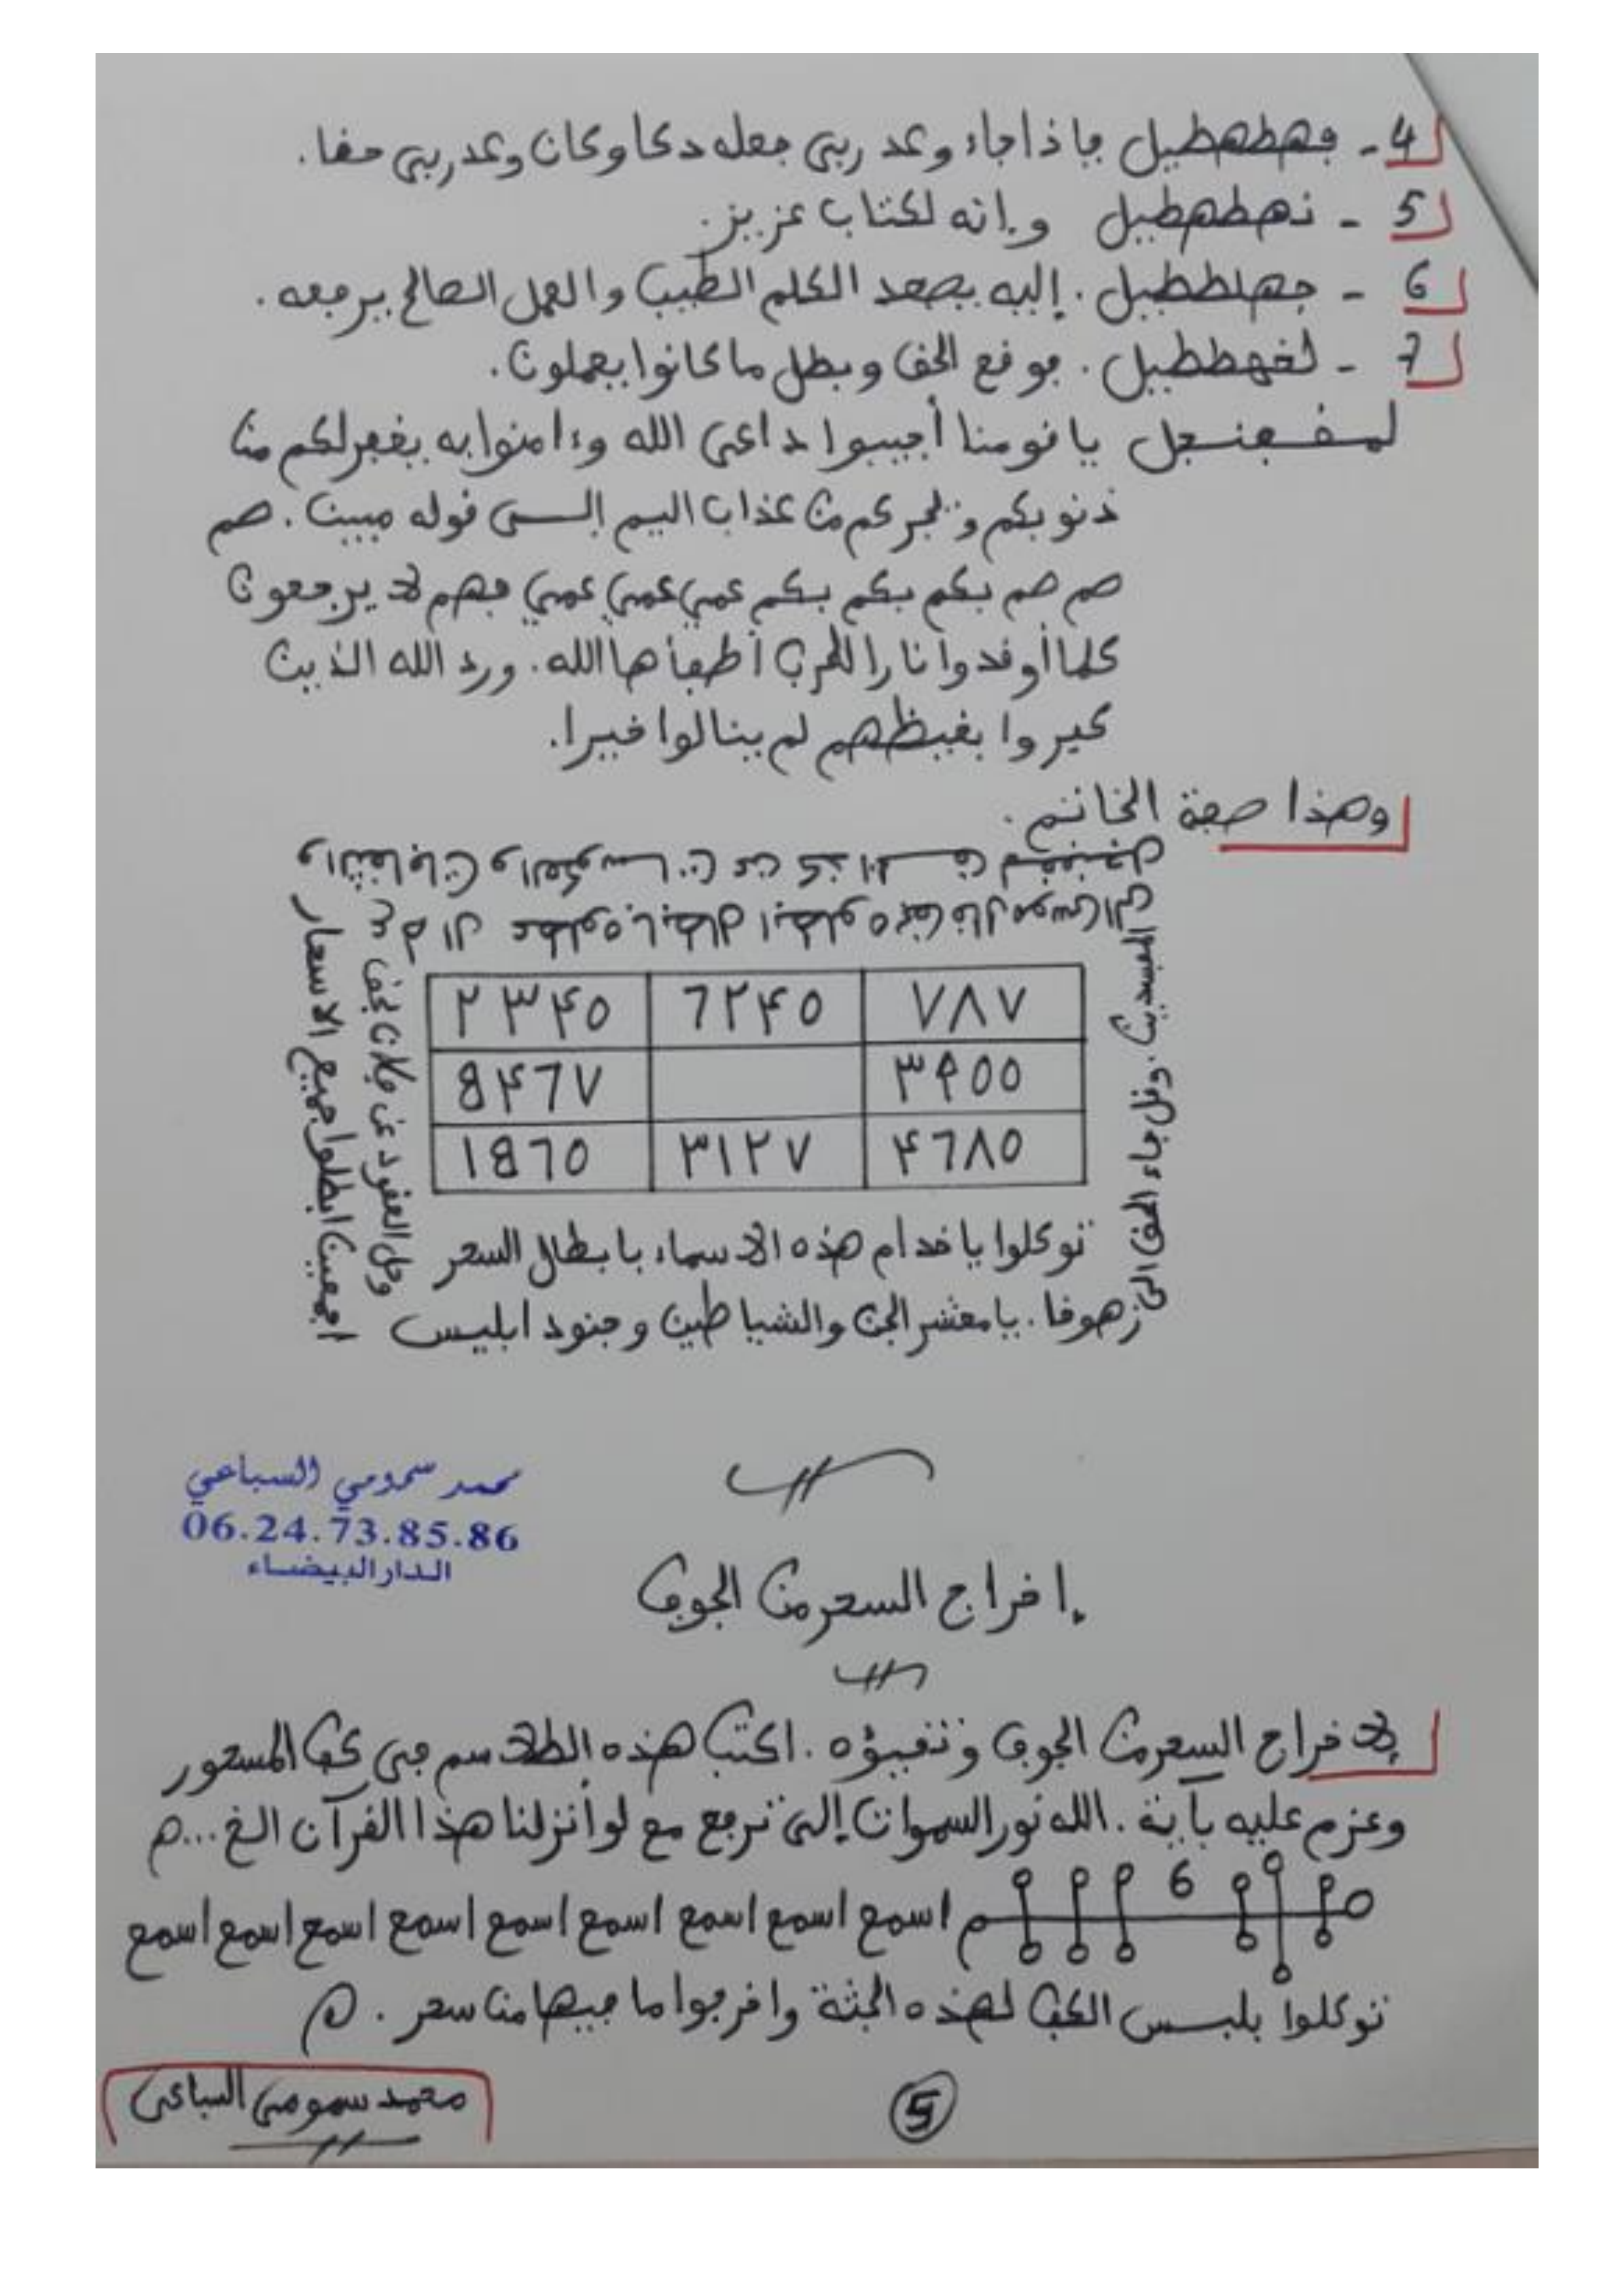 4 - فهطهطيل فإذا جاء وعد ربي جعله دكا وكان وعد ربي حقا.
5 - نهطهطيل وإنه لكتاب عزيز.
6 - جهلططيل. إليه يصعد الكلم الطيب والعمل الصالح يرفعه.
7 - لخهططيل. فوقع الحق وبطل ما كانوا يعملون.
لمقفنجل يا قومنا أجيبوا داعي الله وءامنوا به يغفر لكم من
ذنوبكم ويجركم من عذاب اليم إلى قوله مبين. صم
صم صم بكم بكم بكم عمي عمي عمي فهم لا يرجعون
كلما أوقدوا نارا للحرب أطفأها الله. ورد الله الذين
كفروا بغيظهم لم ينالوا خيرا.
وهذا صفة الخاتم.
٢٣۴٥ 7٢۴٥ ٧٨٧
8۴7٧ ٣٩٥٥
١870 ٣١٢٧ ۴7٨٥
المفسدين. وقل جاء الحق الى
توكلوا يا خدام هذه الاسماء بابطال السحر
زهوقا. يا معشر الجن والشياطين وجنود ابليس
اجمعين ابطلوا جميع الاسحار
وحل العقود عن فلان بحق
محمد سمومي السباعي
06.24.73.85.86
الدار البيضاء
إخراج السحر من الجوف
لإخراج السحر من الجوف وتقيؤه. اكتب هذه الطلاسم في كف المسحور
وعزم عليه بآية. الله نور السموات إلى ترجع مع لو أنزلنا هذا القرآن الخ...ه
6 م اسمع اسمع اسمع اسمع اسمع اسمع اسمع اسمع اسمع
توكلوا بلبس الكف لهذه الجثة واخرجوا ما فيها من سحر. ه
5
محمد سمومي السباعي